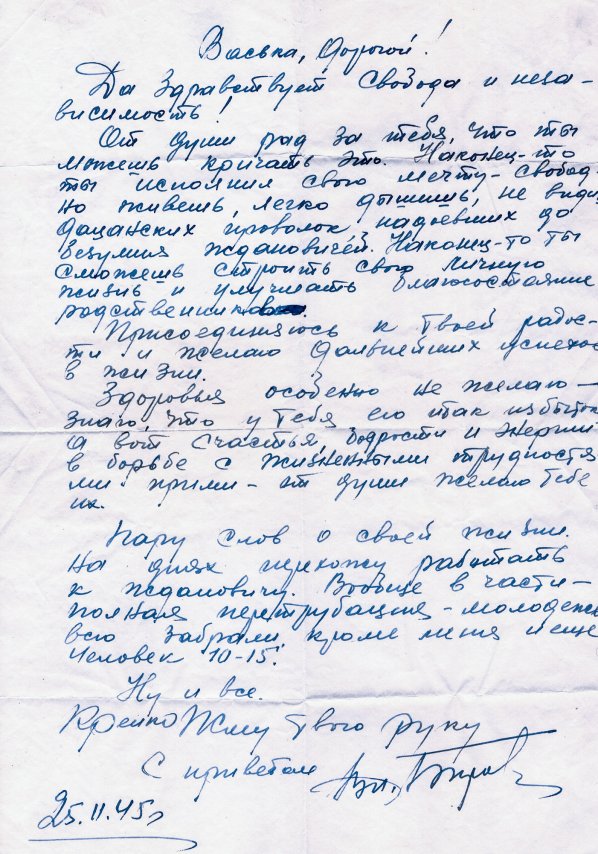 Васька, дорогой!
Да здравствует свобода и неза-
висимость!
От души рад за тебя, что ты
можешь кричать это. Наконец-то
ты исполнил свою мечту - свобод-
но живешь, легко дышишь, не види
проволок, надоевших до
безумия ждановичей. Наконец-то ты
сможешь строить свою личную
жизнь и улучшать благосостояние
родственников.
Присоединяюсь к твоей радос-
ти и желаю дальнейших успехов
в жизни.
Здоровья особенно не желаю -
знаю, что у тебя его итак избыток
А вот счастья, бодрости и энергии
в борьбе с жизненными трудностя
ми прими - от души желаю тебе
их.
Пару слов о своей жизни.
На днях перехожу работать
к ждановичу. Вообще в части -
полная перетрубация - молодежь
всю забрали кроме меня и еще
человек 10-15.
Ну и все.
Крепко жму твою руку
С приветом
25.11.45г